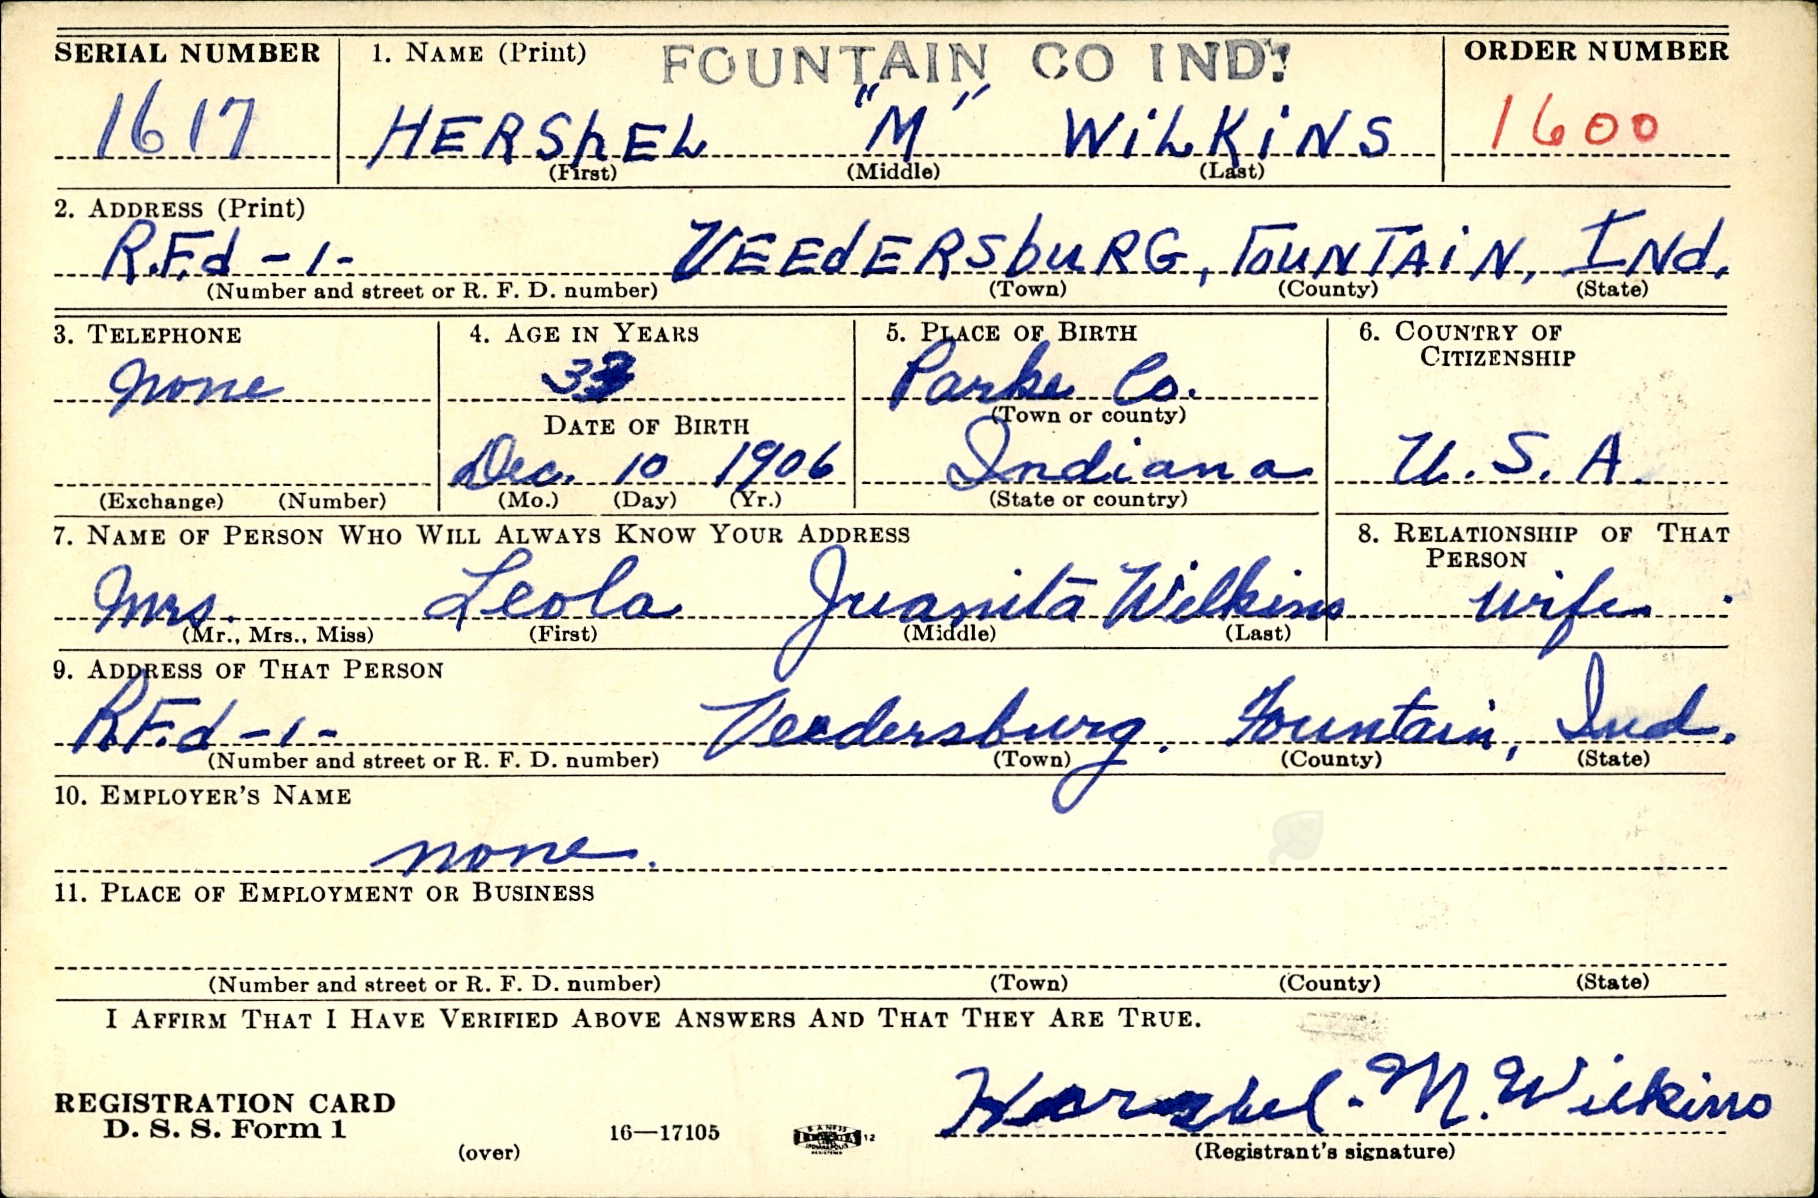 SERIAL NUMBER 1. NAME (Print) FOUNTAIN CO IND. ORDER NUMBER
1617 HERShEL "M" WiLKiNS 1600
(First) (Middle) (Last)
2. ADDRESS (Print)
R.F.d -1- VEEdERSbuRG, FOUNTAiN, INd.
(Number and street or R. F. D. number) (Town) (County) (State)
3. TELEPHONE 4. AGE IN YEARS 5. PLACE OF BIRTH 6. COUNTRY OF CITIZENSHIP
none 33 Parke Co.
DATE OF BIRTH (Town or county)
Dec. 10 1906 Indiana U. S. A.
(Exchange) (Number) (Mo.) (Day) (Yr.) (State or country)
7. NAME OF PERSON WHO WILL ALWAYS KNOW YOUR ADDRESS 8. RELATIONSHIP OF THAT PERSON
Mrs. Leola Juanita Wilkins wife
(Mr., Mrs., Miss) (First) (Middle) (Last)
9. ADDRESS OF THAT PERSON
R.F.d -1- Veedersburg. Fountain, Ind.
(Number and street or R. F. D. number) (Town) (County) (State)
10. EMPLOYER'S NAME
none.
11. PLACE OF EMPLOYMENT OR BUSINESS
(Number and street or R. F. D. number) (Town) (County) (State)
I AFFIRM THAT I HAVE VERIFIED ABOVE ANSWERS AND THAT THEY ARE TRUE.
REGISTRATION CARD Hershel. M. Wilkins
D. S. S. Form 1 16—17105 12
(over) (Registrant's signature)